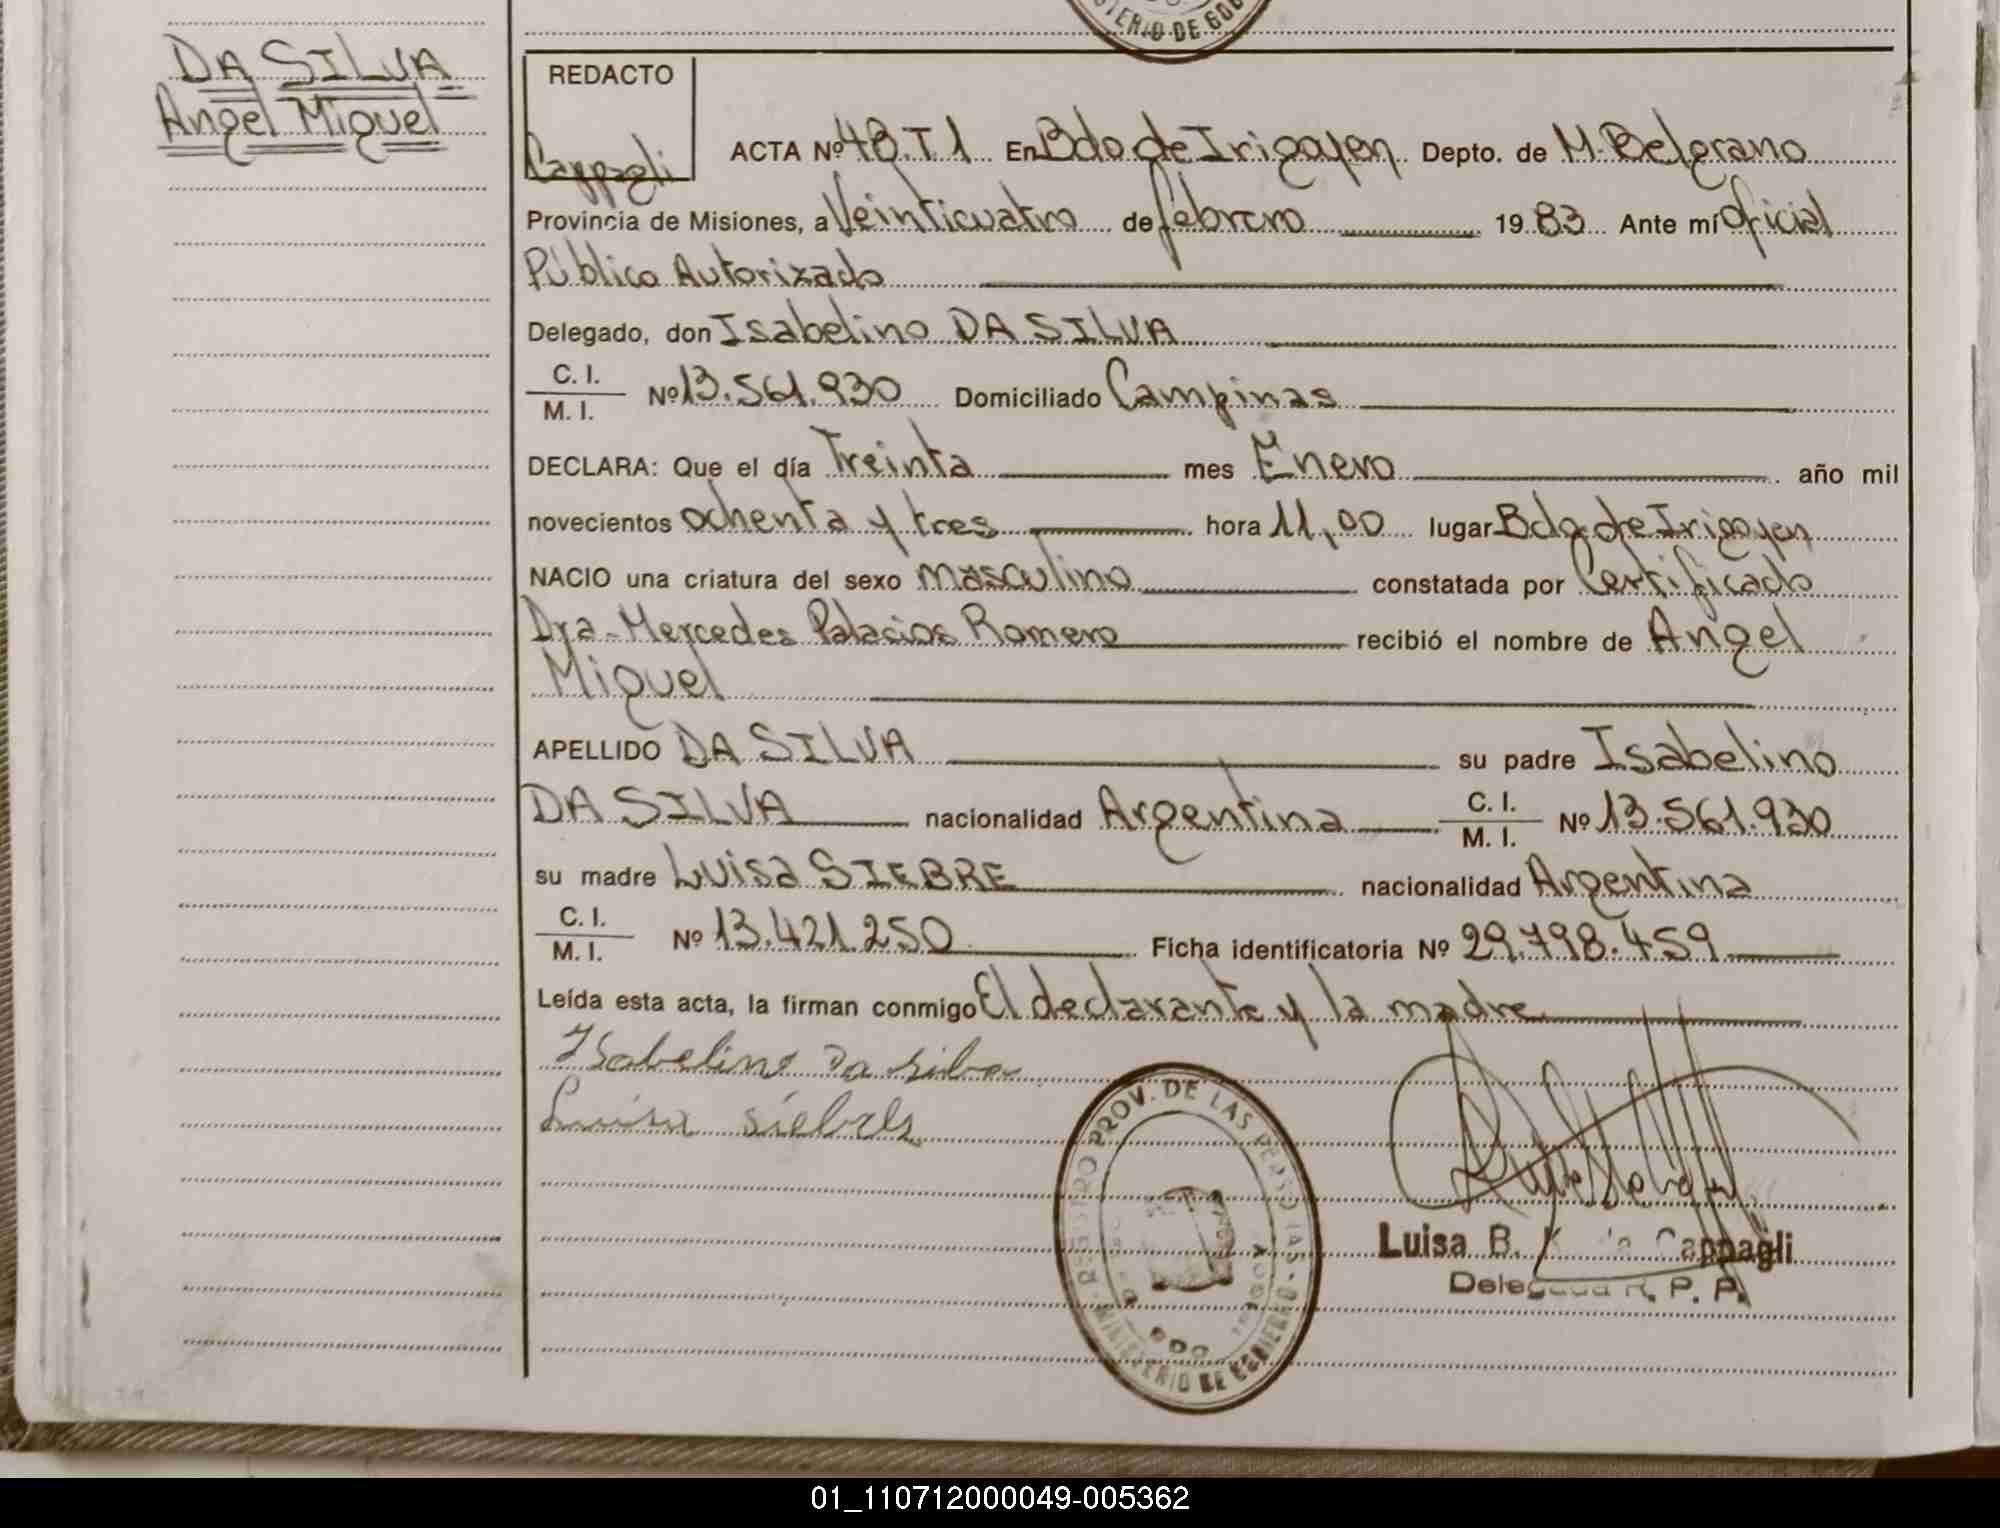 DA SILVA
Angel Miguel
TERIO DE GOB
REDACTO
Cappagli
ACTA Nº 48.T1 En Bdo de Irigoyen Depto. de M. Belgrano
Provincia de Misiones, a Veinticuatro de febrero 1983 Ante mí Oficial
Público Autorizado
Delegado, don Isabelino DA SILVA
C. I.
M. I. Nº 13.561.930 Domiciliado Campinas
DECLARA: Que el día Treinta mes Enero año mil
novecientos ochenta y tres hora 11,00 lugar Bdo de Irigoyen
NACIO una criatura del sexo masculino constatada por Certificado
Dra. Mercedes Palacios Romero recibió el nombre de Angel
Miguel
APELLIDO DA SILVA su padre Isabelino
DA SILVA nacionalidad Argentina C. I.
M. I. Nº 13.561.930
su madre Luisa SIEBRE nacionalidad Argentina
C. I.
M. I. Nº 13.421.250 Ficha identificatoria Nº 29.798.459
Leída esta acta, la firman conmigo El declarante y la madre
Isabelino Da silva
Luisa siebres
REGISTRO PROV. DE LAS PERSONAS
MINISTERIO DE GOBIERNO
Luisa B. Cappagli
Delegada R. P. P.
01_110712000049-005362